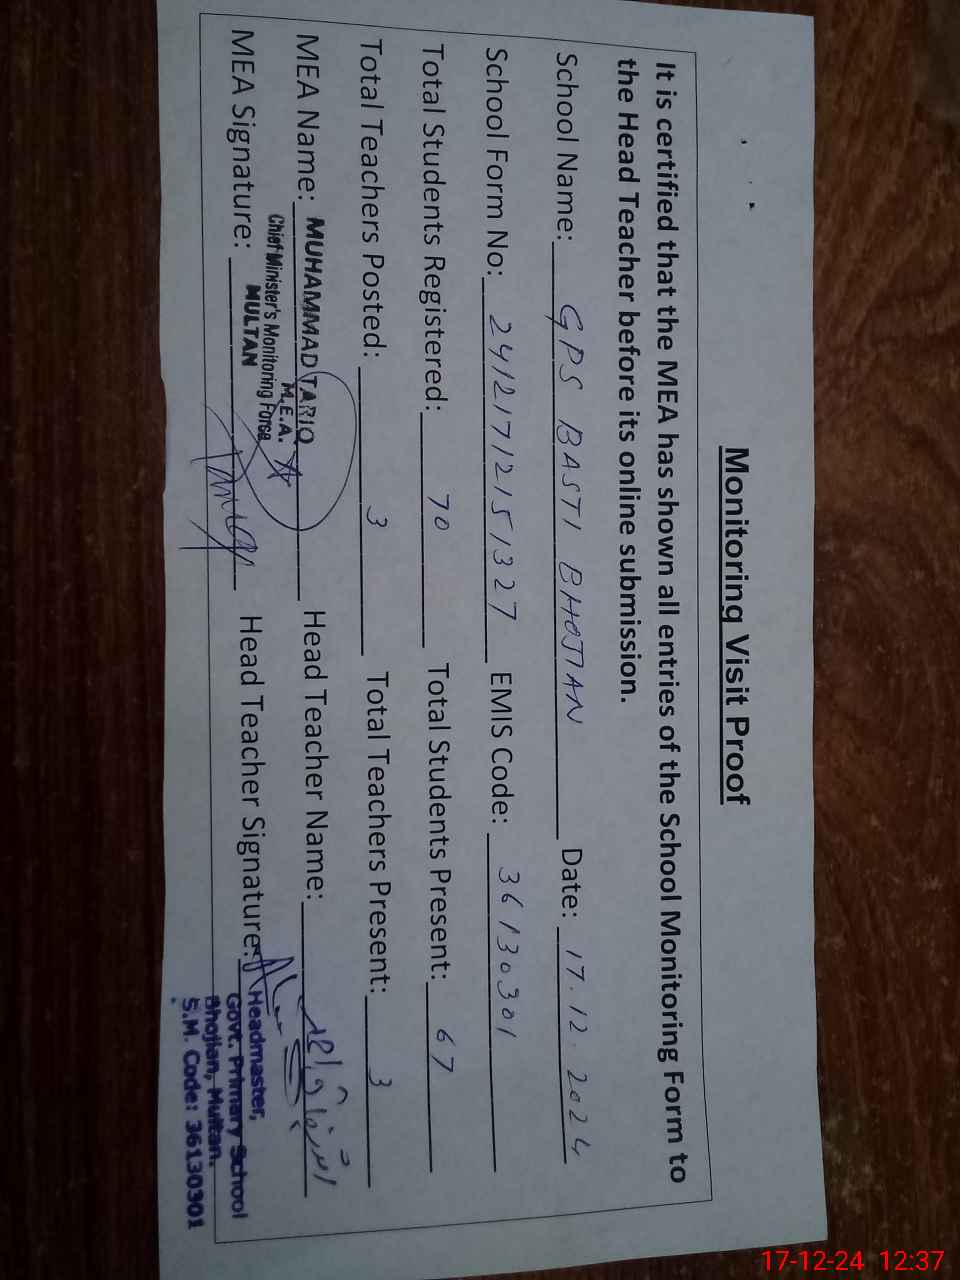 Monitoring Visit Proof
It is certified that the MEA has shown all entries of the School Monitoring Form to
the Head Teacher before its online submission.
School Name: GPS BASTI BHOJIAN Date: 17.12.2024
School Form No: 24121712151327 EMIS Code: 36130301
Total Students Registered: 70 Total Students Present: 67
Total Teachers Posted: 3 Total Teachers Present: 3
MEA Name: MUHAMMAD TARIQ Head Teacher Name:
M.E.A.
Chief Minister's Monitoring Force
MULTAN
MEA Signature: Head Teacher Signature:
Headmaster,
Govt. Primary School
Bhojian, Multan.
S.M. Code: 36130301
17-12-24 12:37